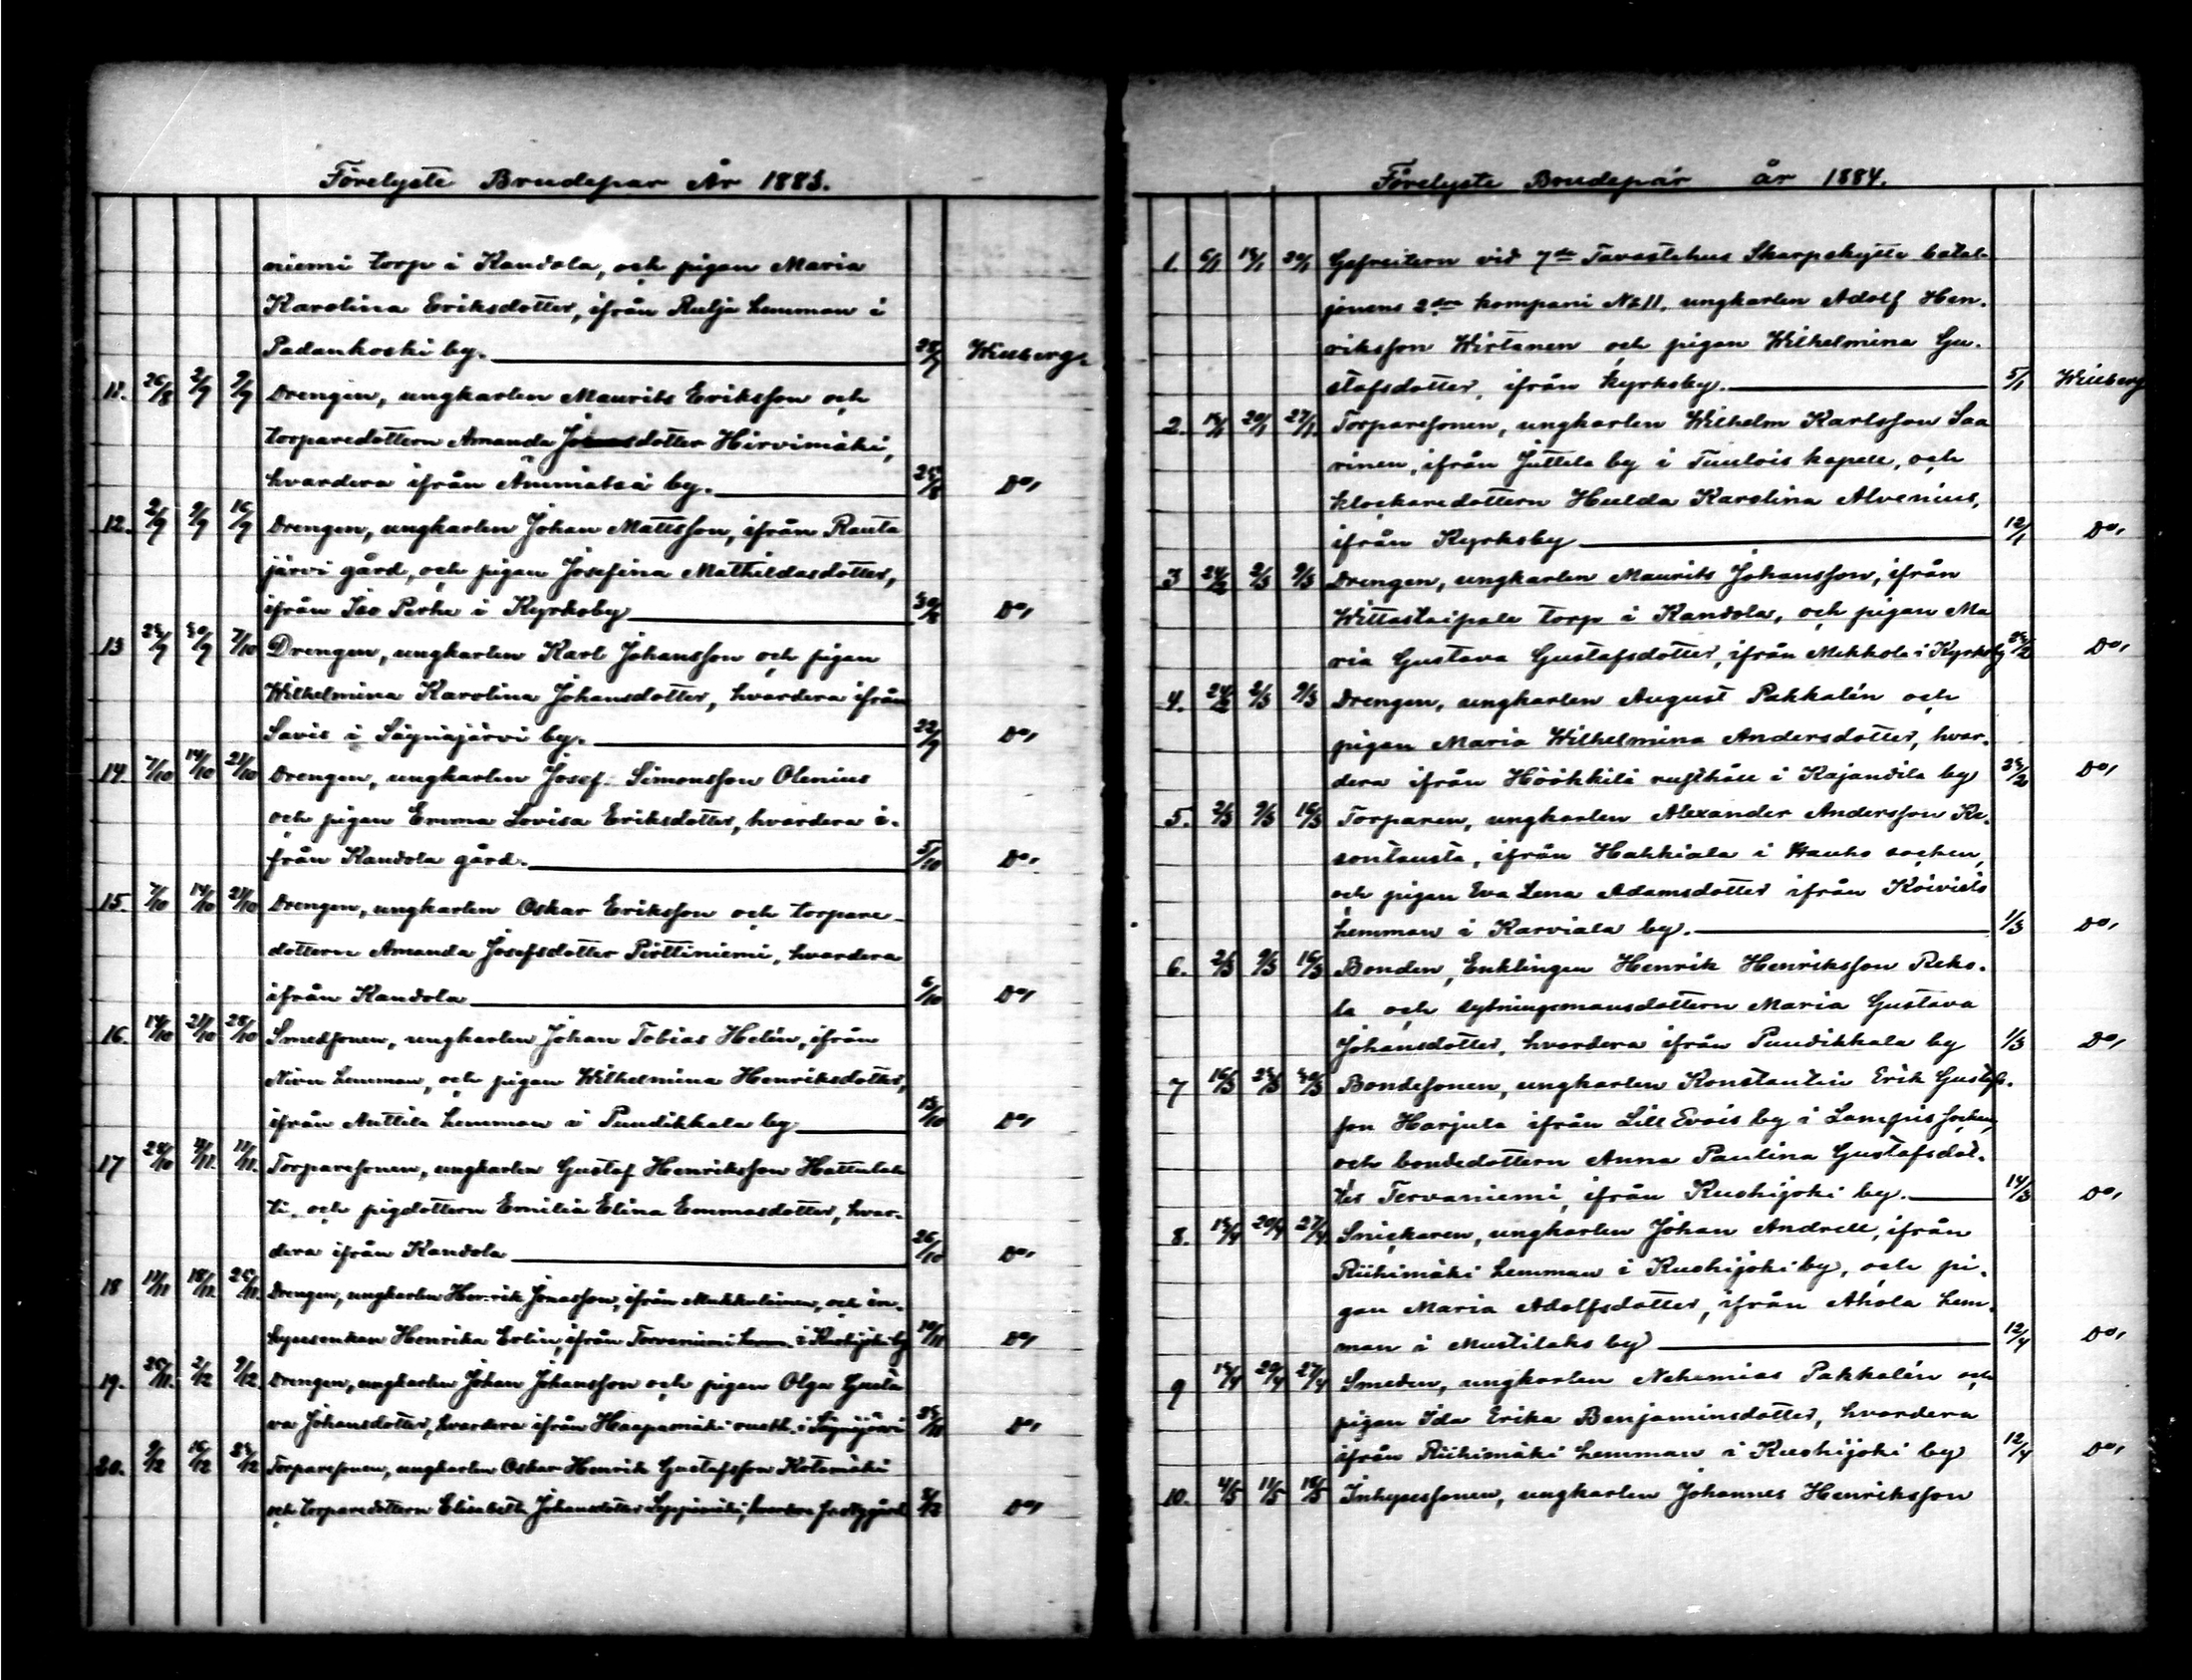 Förelyste Brudepar År 1883.
niemi torp i Kandola, och pigan Maria
Karolina Eriksdotter, ifrån Rulja hemman i
Padankoski by. Wiiberg.
11. 26/8 2/9 9/9 Drengen, ungkarlen Maurits Eriksson och
torparedottern Amanda dotter Hirvimäki,
hvardera ifrån Ämmätsä by. 25/8 Do,
12. 2/9 9/9 16/9 Drengen, ungkarlen Johan Mattsson, ifrån Rauta
järvi gård, och pigan Josefina Mathildasdotter,
ifrån Iso Perhe i Kyrkoby 30/8 Do,
13 23/9 30/9 7/10 Drengen, ungkarlen Karl Johansson och pigan
Wilhelmina Karolina Johansdotter, hvardera ifrån
Savis i Säynäjärvi by. 22/9 Do,
14. 7/10 14/10 21/10 Drengen, ungkarlen Josef Simonsson Olenius
och pigan Emma Lovisa Eriksdotter, hvardera i-
från Kandola gård. 5/10 Do.
15. 7/10 14/10 21/10 Drengen, ungkarlen Oskar Eriksson och torpare-
dottern Amanda Josefsdotter Pirttiniemi, hvardera
ifrån Kandola 6/10 Do,
16. 14/10 21/10 28/10 Smedsonen, ungkarlen Johan Tobias Helén, ifrån
hemman, och pigan Wilhelmina Henriksdotter,
ifrån Anttila hemman i Pundikkala by 13/10 Do,
17 28/10 4/11. 11/11. Torparesonen, ungkarlen Gustaf Henriksson Hattulah
ti, och pigdottern Emilia Elina Emmasdotter, hvar-
dera ifrån Kandola 26/10 Do,
18 11/11 18/11. 25/11. Drengen, ungkarlen Henrik Jonasson, ifrån Mukkulainen, och in-
hysesenkan Henrika Erlin, ifrån Tervaniemi hemm. i Kuohijoki by 10/11 Do,
19. 25/11. 2/12 9/12 Drengen, ungkarlen Johan Johansson och pigan Olga Gusta
va Johansdotter, hvardera ifrån Haapamäki rusth. i Säynäjärvi Do,
20. 9/12 16/12 23/12 Torparesonen, ungkarlen Oskar Henrik Gustafsson Kotomäki
och torparedottern Elisabeth Johansdotter Seppämäki, hvardera fr. Nygård Do,
Förelyste Brudepar år 1884.
1. 6/1 13/1 20/1 Gefreitern vid 7de Tavastehus Skarpskytte batal-
jonens 2dra kompani No 11. ungkarlen Adolf Hen-
riksson Wirtanen och pigan Wilhelmina Gu-
stafsdotter, ifrån Kyrkoby. 5/1 Wiiberg
2. 13/1 20/1 27/1. Torparesonen, ungkarlen Wilhelm Karlsson Saa
rinen, ifrån Juttila by i Tuulois kapell, och
klockaredottern Hulda Karolina Alvenius,
ifrån Kyrkoby 12/1 Do,
3 24/2 2/3 9/3 Drengen, ungkarlen Maurits Johansson, ifrån
Wittastaipale torp i Kandola, och pigan Ma
ria Gustava Gustafsdotter, ifrån Mikkola i Kyrkoby 23/2 Do,
4. 24/2 2/3 9/3 Drengen, ungkarlen August Pakkalén och
pigan Maria Wilhelmina Andersdotter, hvar-
dera ifrån Höökkilä rusthåll i Kajandila by 23/2 Do,
5. 2/3 9/3 16/3 Torparen, ungkarlen Alexander Andersson Ke-
sontausta, ifrån Hakkiala i Hauho socken,
och pigan Eva Lena Adamsdotter ifrån Koivisto
hemman i Karviala by. 1/3 Do,
6. 2/3 9/3 16/3 Bonden, Enklingen Henrik Henriksson Reko-
la och sytningsmansdottern Maria Gustava
Johansdotter, hvardera ifrån Pundikkala by 1/3 Do,
7 16/3 23/3 30/3 Bondesonen, ungkarlen Konstantin Erik Gustafs-
son Harjula ifrån Lill Evois by i Lampis socken,
och bondedottern Anna Paulina Gustafsdot-
ter Tervaniemi, ifrån Kuohijoki by. 14/3 Do,
8. 13/4 20/4 27/4. Snickaren, ungkarlen Johan Andrell, ifrån
Riihimäki hemman i Kuohijoki by, och pi-
gan Maria Adolfsdotter, ifrån Ahola hem-
man i Mustilaks by 12/4 Do,
9 13/4 20/4 27/4 Smeden, ungkarlen Nehemias Pakkalén och
pigan Ida Erika Benjaminsdotter, hvardera
ifrån Riihimäki hemman i Kuohijoki by 12/4 Do,
10. 4/5 11/5 18/5 Inhysessonen, ungkarlen Johannes Henriksson